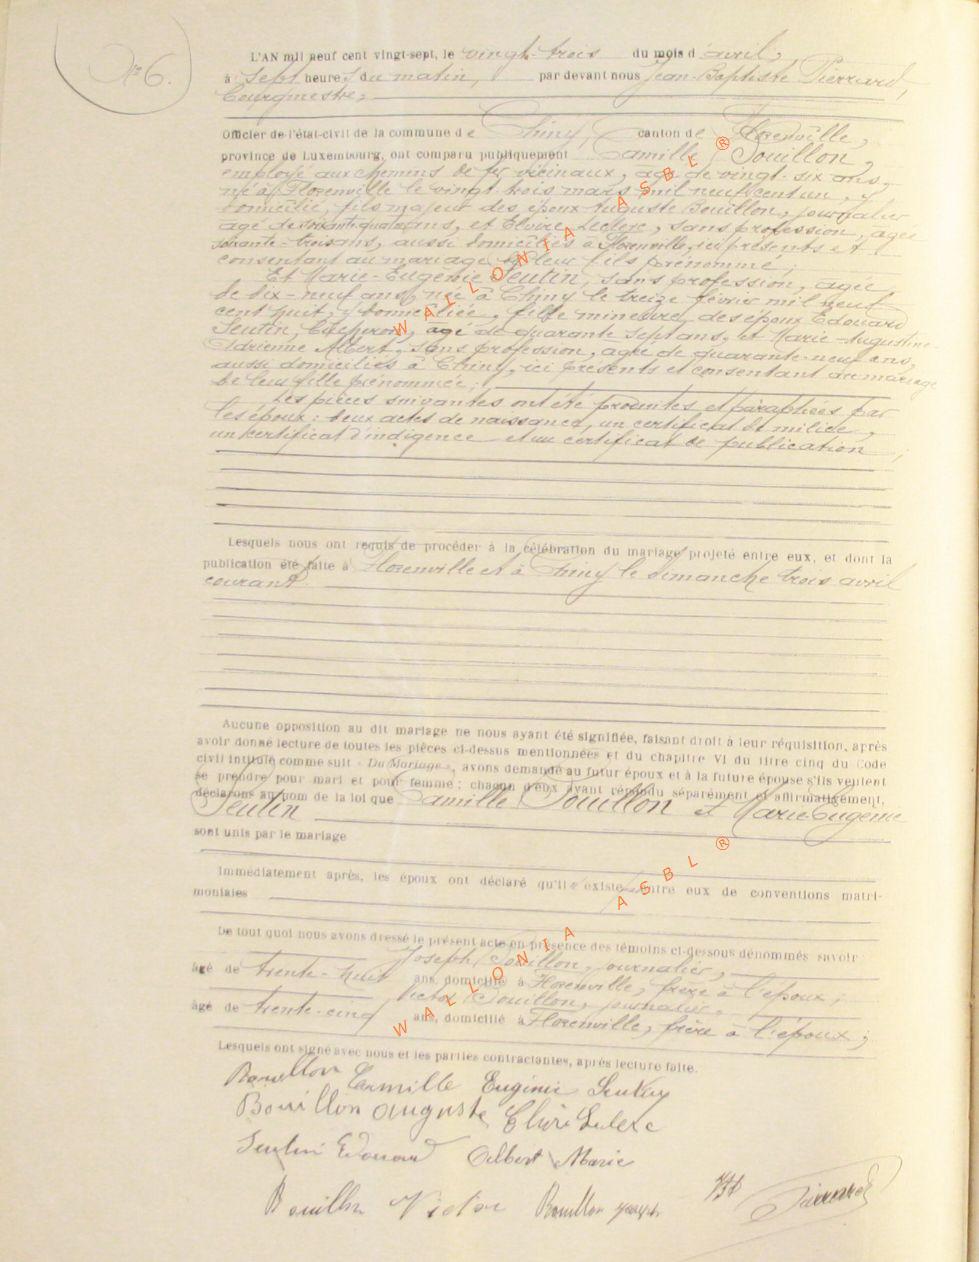 No 6.
L'AN mil neuf cent vingt-sept, le vingt-trois du mois d'avril,
à sept heures du matin, par devant nous Jean-Baptiste Pierrard,
Bourgmestre,
Officier de l'état-civil de la commune de Chiny, canton de Florenville,
province de Luxembourg, ont comparu publiquement Camille Bouillon,
employé aux chemins de fer vicinaux, âgé de vingt-six ans,
né à Florenville le vingt-trois mars mil neuf cent un, y
domicilié, fils majeur des époux Auguste Bouillon, journalier
âgé de soixante-quatre ans, et Elvire Leclerc, sans profession, âgée
soixante-trois ans, aussi domiciliés à Florenville, ici présents et
consentant au mariage de leur fils prénommé;
Et Marie-Eugénie Seutin, sans profession, âgée
de dix-neuf ans, née à Chiny le treize février mil neuf
cent huit, y domiciliée, fille mineure des époux Edouard
Seutin, bûcheron, âgé de quarante sept ans, et Marie-Augustine-
Adrienne Albert, sans profession, âgée de quarante-neuf ans,
aussi domiciliés à Chiny, ici présents et consentant au mariage
de leur fille prénommée;
Les pièces suivantes ont été produites et paraphées par
les époux: deux actes de naissance, un certificat de milice,
un certificat d'indigence et un certificat de publication;
Lesquels nous ont requis de procéder à la célébration du mariage projeté entre eux, et dont la
publication été faite à Florenville et à Chiny le dimanche trois avril
courant
Aucune opposition au dit mariage ne nous ayant été signifiée, faisant droit à leur réquisition, après
avoir donné lecture de toutes les pièces ci-dessus mentionnées et du chapitre VI du titre cinq du Code
civil intitulé comme suit « Du Mariage », avons demandé au futur époux et à la future épouse s'ils veulent
se prendre pour mari et pour femme; chacun d'eux ayant répondu séparément et affirmativement,
déclarons au nom de la loi que Camille Bouillon et Marie-Eugénie
Seutin
sont unis par le mariage
Immédiatement après, les époux ont déclaré qu'il existe entre eux de conventions matri-
moniales
De tout quoi nous avons dressé le présent acte en présence des témoins ci-dessous dénommés savoir:
Joseph Bouillon, journalier,
âgé de trente-huit ans, domicilié à Florenville, frère à l'époux;
Victor Bouillon, journalier,
âgé de trente-cinq ans, domicilié à Florenville, frère à l'époux;
Lesquels ont signé avec nous et les parties contractantes, après lecture faite.
Bouillon Camille Eugénie Seutin
Bouillon Auguste Elvire Leclerc
Seutin Edouard Albert Marie
Bouillon Victor Bouillon Joseph JB Pierrard
WALLONIA ASBL ®
WALLONIA ASBL ®